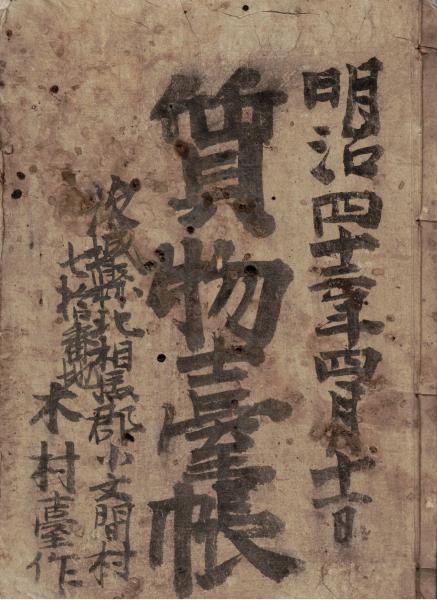 明治四十三年四月十一日
質物臺帳
茨城縣北相馬郡小文間村
七拾壱番地
木村臺作